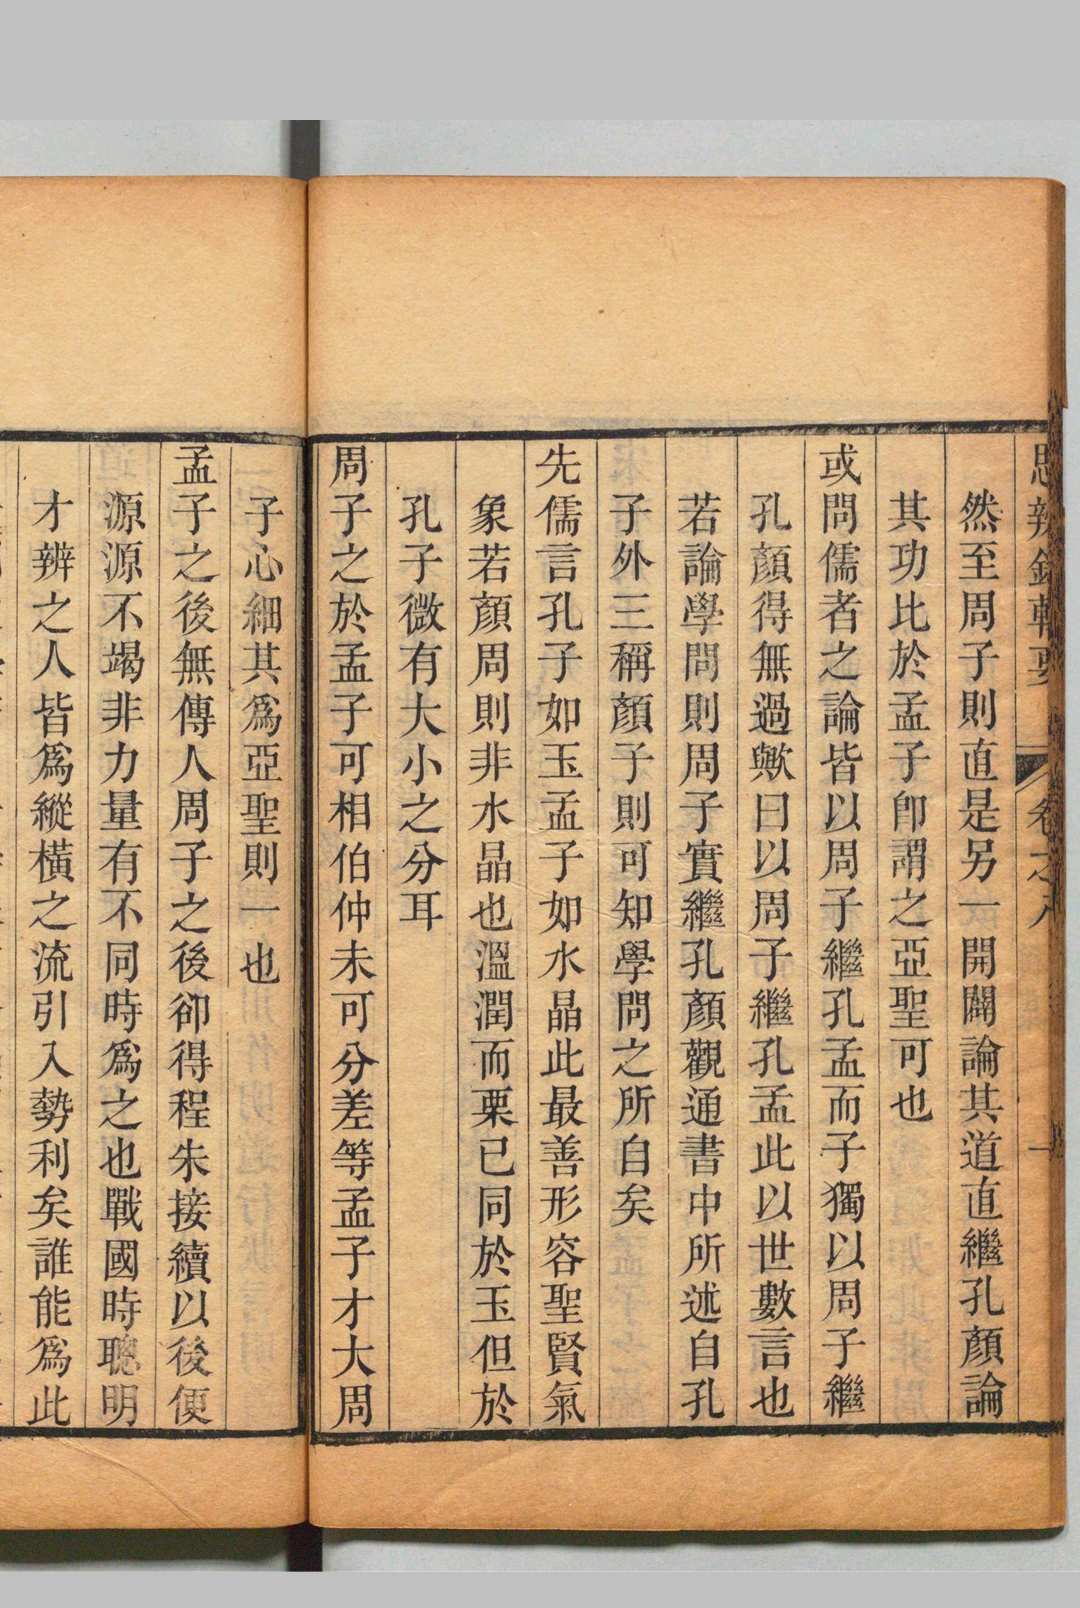 思辨錄輯要 卷之八 一
然至周子則直是另一開闢論其道直繼孔顏論
其功比於孟子卽謂之亞聖可也
或問儒者之論皆以周子繼孔孟而子獨以周子繼
孔顏得無過歟曰以周子繼孔孟此以世數言也
若論學問則周子實繼孔顏觀通書中所述自孔
子外三稱顏子則可知學問之所自矣
先儒言孔子如玉孟子如水晶此最善形容聖賢氣
象若顏周則非水晶也溫潤而栗已同於玉但於
孔子微有大小之分耳
周子之於孟子可相伯仲未可分差等孟子才大周
子心細其爲亞聖則一也
孟子之後無傳人周子之後卻得程朱接續以後便
源源不竭非力量有不同時爲之也戰國時聰明
才辨之人皆爲縱橫之流引入勢利矣誰能爲此